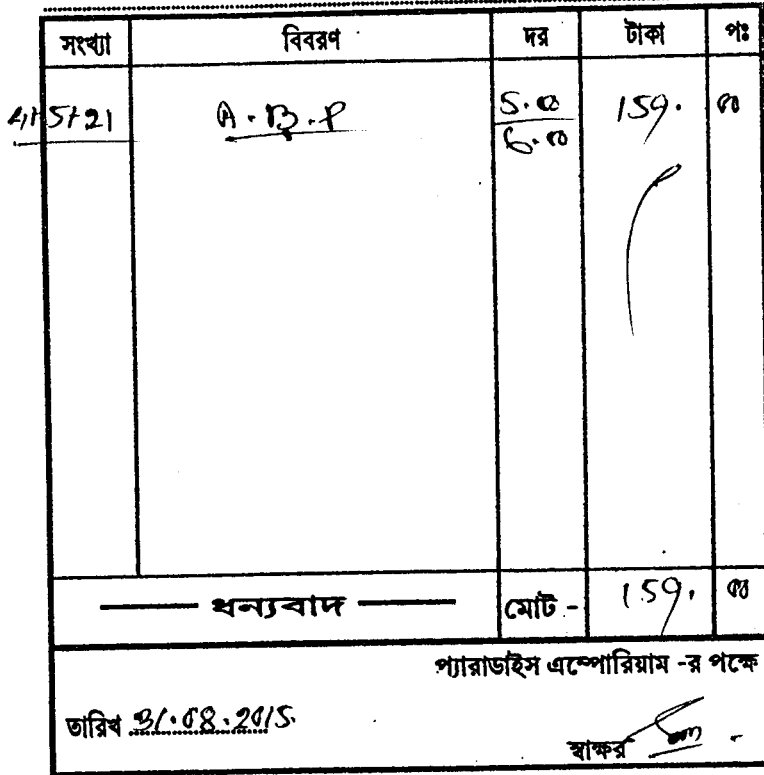 সংখ্যা বিবরণ দর টাকা পঃ
4+5+21 A.B.P 5.00 159. 00
6.00
ধন্যবাদ মোট - 159. 00
প্যারাডাইস এম্পোরিয়াম -র পক্ষে
তারিখ 31.08.2015
স্বাক্ষর